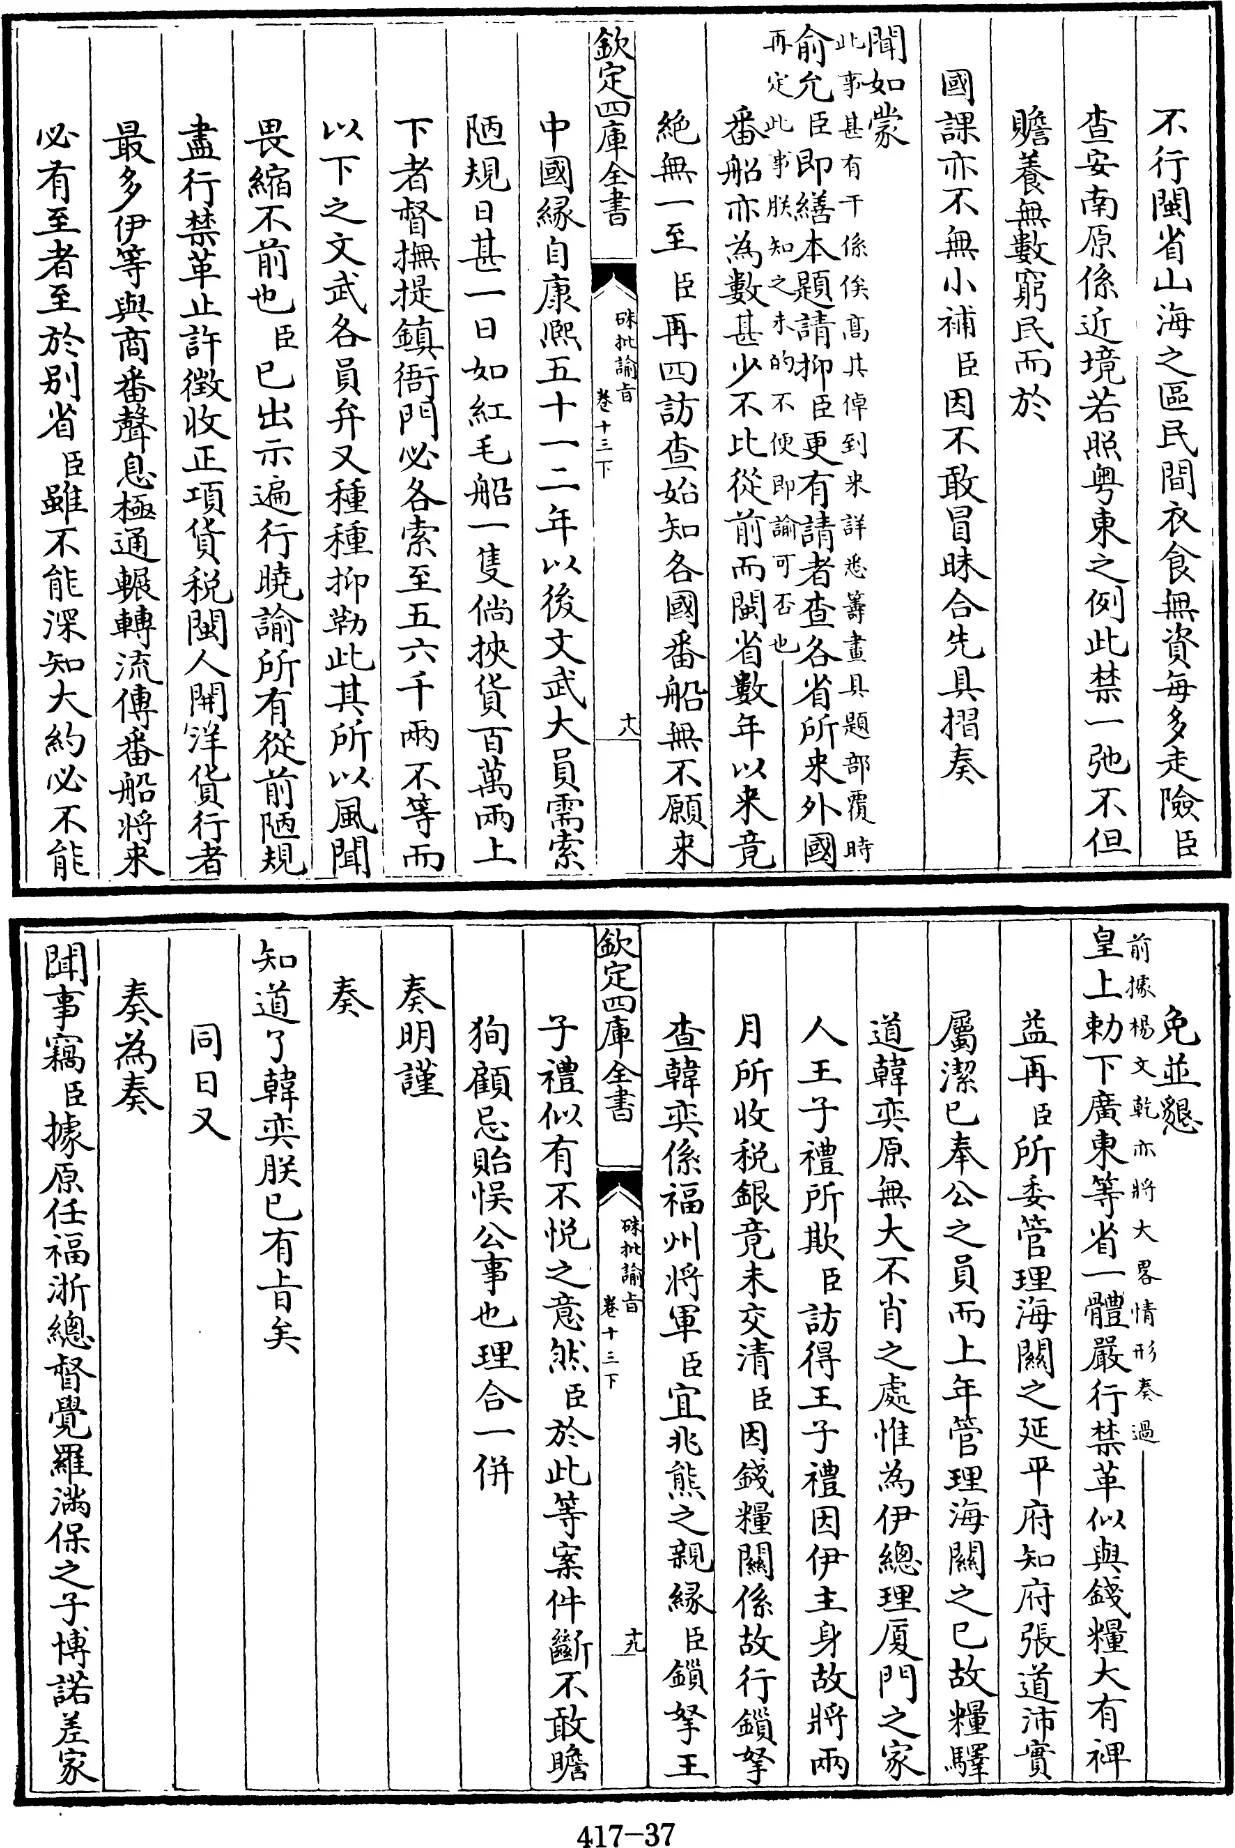 不行閩省山海之區民間衣食無資每多走險臣
查安南原係近境若照粤東之例此禁一弛不但
贍養無數窮民而於
國課亦不無小補臣因不敢冒昧合先具摺奏
聞如蒙
此事甚有干係俟高其倬到来詳悉籌畫具題部覆時
俞允臣即繕本題請抑臣更有請者查各省所来外國
再定此事朕知之未的不便即諭可否也
番船亦為數甚少不比從前而閩省數年以来竟
絶無一至臣再四訪查始知各國番船無不願来
欽定四庫全書
硃批諭旨
卷十三下
十八
中國緣自康熙五十一二年以後文武大員需索
陋規日甚一日如紅毛船一隻倘挾貨百萬兩上
下者督撫提鎮衙門必各索至五六千兩不等而
以下之文武各員弁又種種抑勒此其所以風聞
畏縮不前也臣已出示遍行曉諭所有從前陋規
盡行禁革止許徵收正項貨稅閩人開洋貨行者
最多伊等與商番聲息極通輾轉流傳番船將来
必有至者至於别省臣雖不能深知大約必不能
免並懇
前據楊文乾亦將大畧情形奏過
皇上勅下廣東等省一體嚴行禁革似與錢糧大有裨
益再臣所委管理海關之延平府知府張道沛實
屬潔己奉公之員而上年管理海關之已故糧驛
道韓奕原無大不肖之處惟為伊總理厦門之家
人王子禮所欺臣訪得王子禮因伊主身故將兩
月所收稅銀竟未交清臣因錢糧關係故行鎖拏
查韓奕係福州將軍臣宜兆熊之親緣臣鎖拏王
欽定四庫全書
硃批諭旨
卷十三下
十九
子禮似有不悦之意然臣於此等案件斷不敢瞻
狥顧忌貽悞公事也理合一併
奏明謹
奏
知道了韓奕朕已有旨矣
同日又
奏為奏
聞事竊臣據原任福浙總督覺羅滿保之子博諾差家
417-37